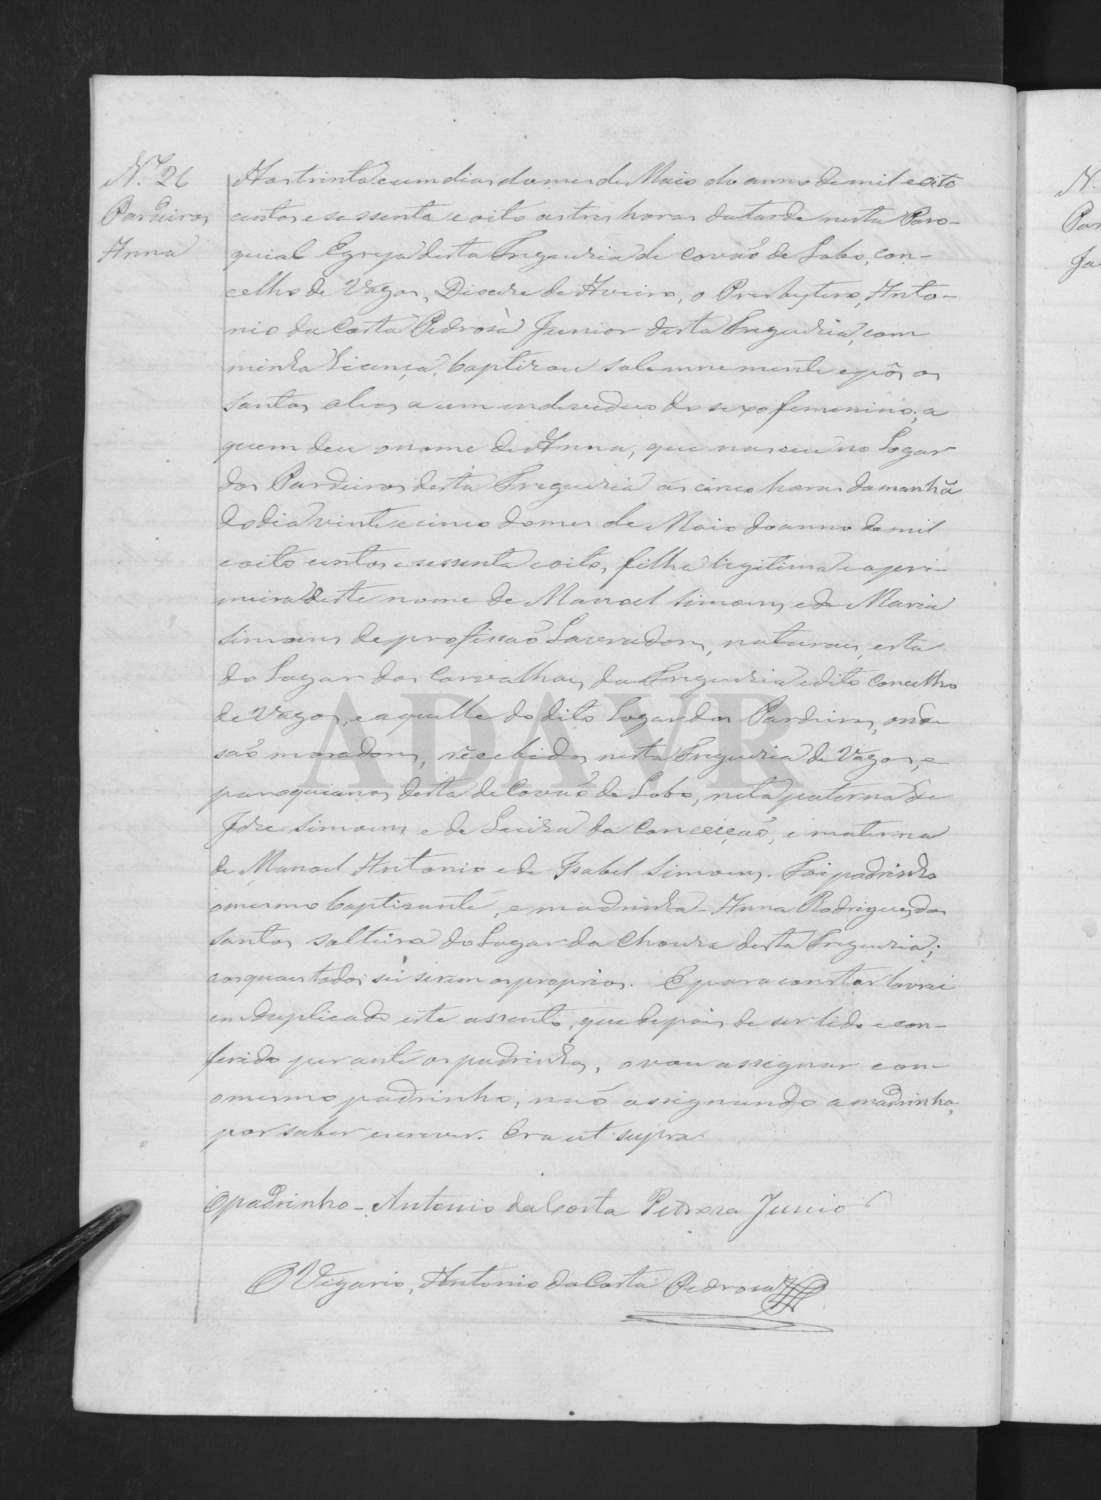 N.º 26
Pardeiros
Anna
Aos trinta e um dias do mes de Maio do anno de mil e oito
centos e sessenta e oito as tres horas da tarde nesta Paro-
quial Egreja desta Freguezia de Covão de Lobo, con-
celho de Vagos, Diocese de Aveiro, o Presbytero, Anto-
nio da Costa Pedrosa Junior desta Freguezia, com
minha licença, baptizou solemnemente e pôs os
santos oleos a um individuo do sexo femenino, a
quem deu o nome de Anna, que nasceu no Logar
dos Pardeiros desta Freguezia as cinco horas da manhã
do dia vinte e cinco do mes de Maio do anno de mil
e oito centos e sessenta e oito, filha legitima e a pri-
meira deste nome de Manoel Simoens, e de Maria
Simoens de profissão Lavradores, naturais, esta
do Logar dos Carvalhais, da Freguezia e dito Concelho
de Vagos, e aquelle do dito Logar dos Pardeiros, onde
são moradores, recebidos nesta Freguezia de Vagos, e
paroquianos desta de Covão de Lobo, neta paterna de
Jose Simoens e de Luiza da Conceição, e materna
de Manoel Antonio e de Isabel Simoens. Foi padrinho
o mesmo baptisante, e madrinha Anna Rodrigues dos
Santos solteira do Logar da Choura desta Freguezia;
os quaes todos sei serem os proprios. E para constar lavrei
em duplicado este assento, que depois de ser lido e con-
ferido perante os padrinhos, o vou assignar com
o mesmo padrinho, não assignando a madrinha,
por saber escrever. Era ut supra.
O padrinho - Antonio da Costa Pedrosa Junior
O Vigario, Antonio da Costa Pedrosa
N.
Par
Ja
ADAVR